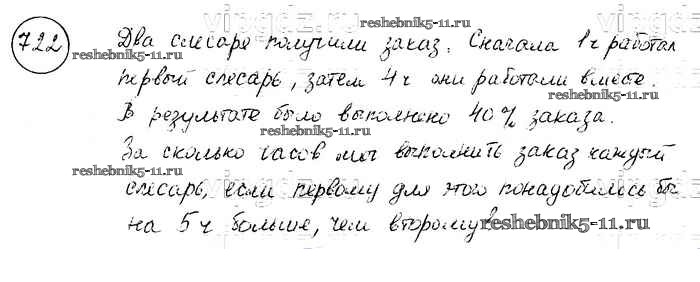 722 Два слесаря получили заказ. Сначала 1 ч работал
первый слесарь, затем 4 ч они работали вместе.
В результате было выполнено 40% заказа.
За сколько часов мог выполнить заказ каждый
слесарь, если первому для этого понадобилось бы
на 5 ч больше, чем второму?
reshebnik5-11.ru
reshebnik5-11.ru
reshebnik5-11.ru
reshebnik5-11.ru
reshebnik5-11.ru
reshebnik5-11.ru